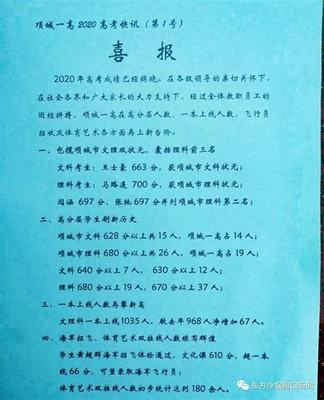 项城一高2020高考快讯（第1号）
喜 报
2020年高考成绩已经揭晓。在各级领导的亲切关怀下，
在社会各界和广大家长的大力支持下，经过全体教职员工的
团结拼搏，项城一高在高分层人数、一本上线人数、飞行员
招收及体育艺术各方面再上新台阶。
一、包揽项城市文理双状元，囊括理科前三名
文科考生：王士豪 663分，获项城市文科状元；
理科考生：马路遥 700分，获项城市理科状元；
闫涵 697分、张艳 697分并列项城市理科第二名；
二、高分层学生刷新历史
项城市文科628分以上共15人，项城一高占14人；
项城市理科680分以上共26人，项城一高占19人；
文科 640分以上7人， 630分以上12人；
理科 680分以上19人，670分以上37人；
三、一本上线人数再攀新高
文理科一本上线1035人，较去年968人净增加67人。
四、海军招飞、体育艺术双挂线人数续写辉煌
学生黄超辉海军招飞体检通过，文化课610分，超一本
线66分，可望录取海军飞行员；
体育艺术双挂线人数初步统计达到180余人。
东方今报周口新闻